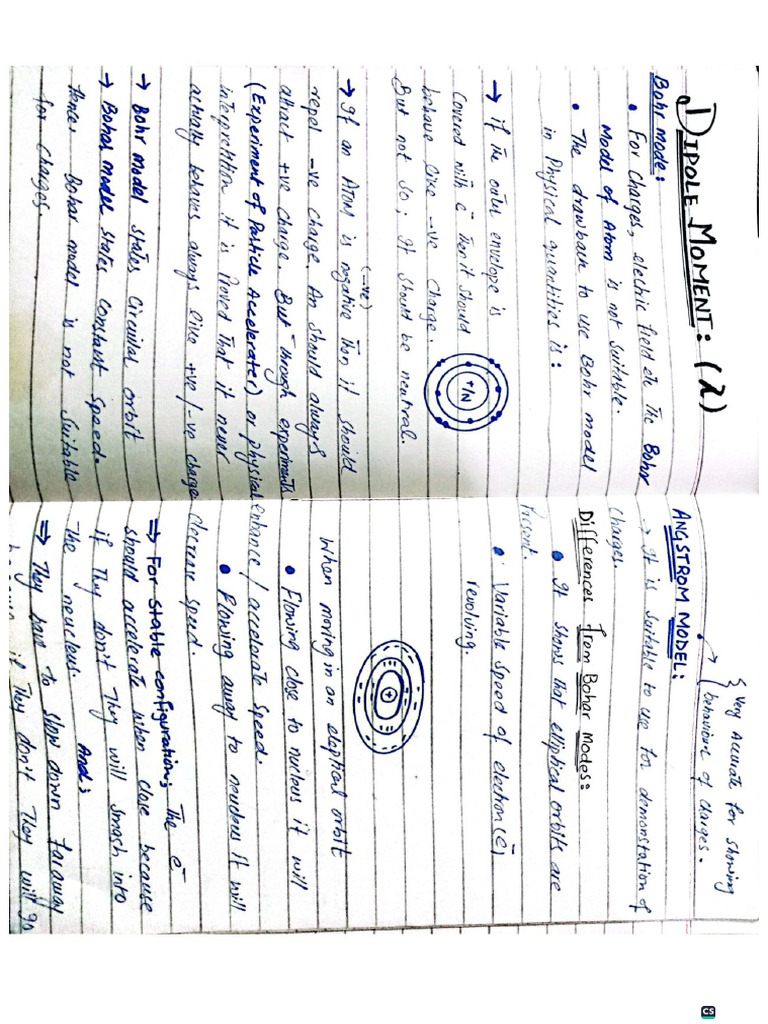 DIPOLE MOMENT: (λ)
Bohr mode:
• For charges, electric field etc The Bohr
Model of Atom is not suitable.
• The drawback to use Bohr model
in Physical quantities is:
→ if the outer envelope is
covered with e⁻ then it should
behave like -ve charge.
But not so; It should be neutral.
+/N
(-ve)
→ If an Atom is negative then it should
repel -ve charge. An should always
attract +ve charge. But through experiments
(Experiment of Particle Accelerater) or physical
interpretition it is Proved That it never
actually behaves always like +ve/-ve charge
→ Bohr model states circuital orbit
→ Bohar model states constant speed.
Hence Bohar model is not suitable
for charges.
{ Very Accurate for showing
behaviour of charges.
ANGSTROM MODEL:
→ It is suitable to use for demonstation of
charges.
Differences from Bohar Modes:
• It shows that elliptical orbits are
Present.
• Variable speed of electron (e⁻)
revolving.
+
When moving in an eleptical orbit
• Flowing close to nucleus it will
enhance / accelerate speed.
• Flowing away to neucleus it will
decrease speed.
⇒ For stable configuration; The e⁻
should accelerate when close because
if They don't They will smash into
The neucleus. And;
⇒ They have to slow down far away
because if They don't They will go
CS